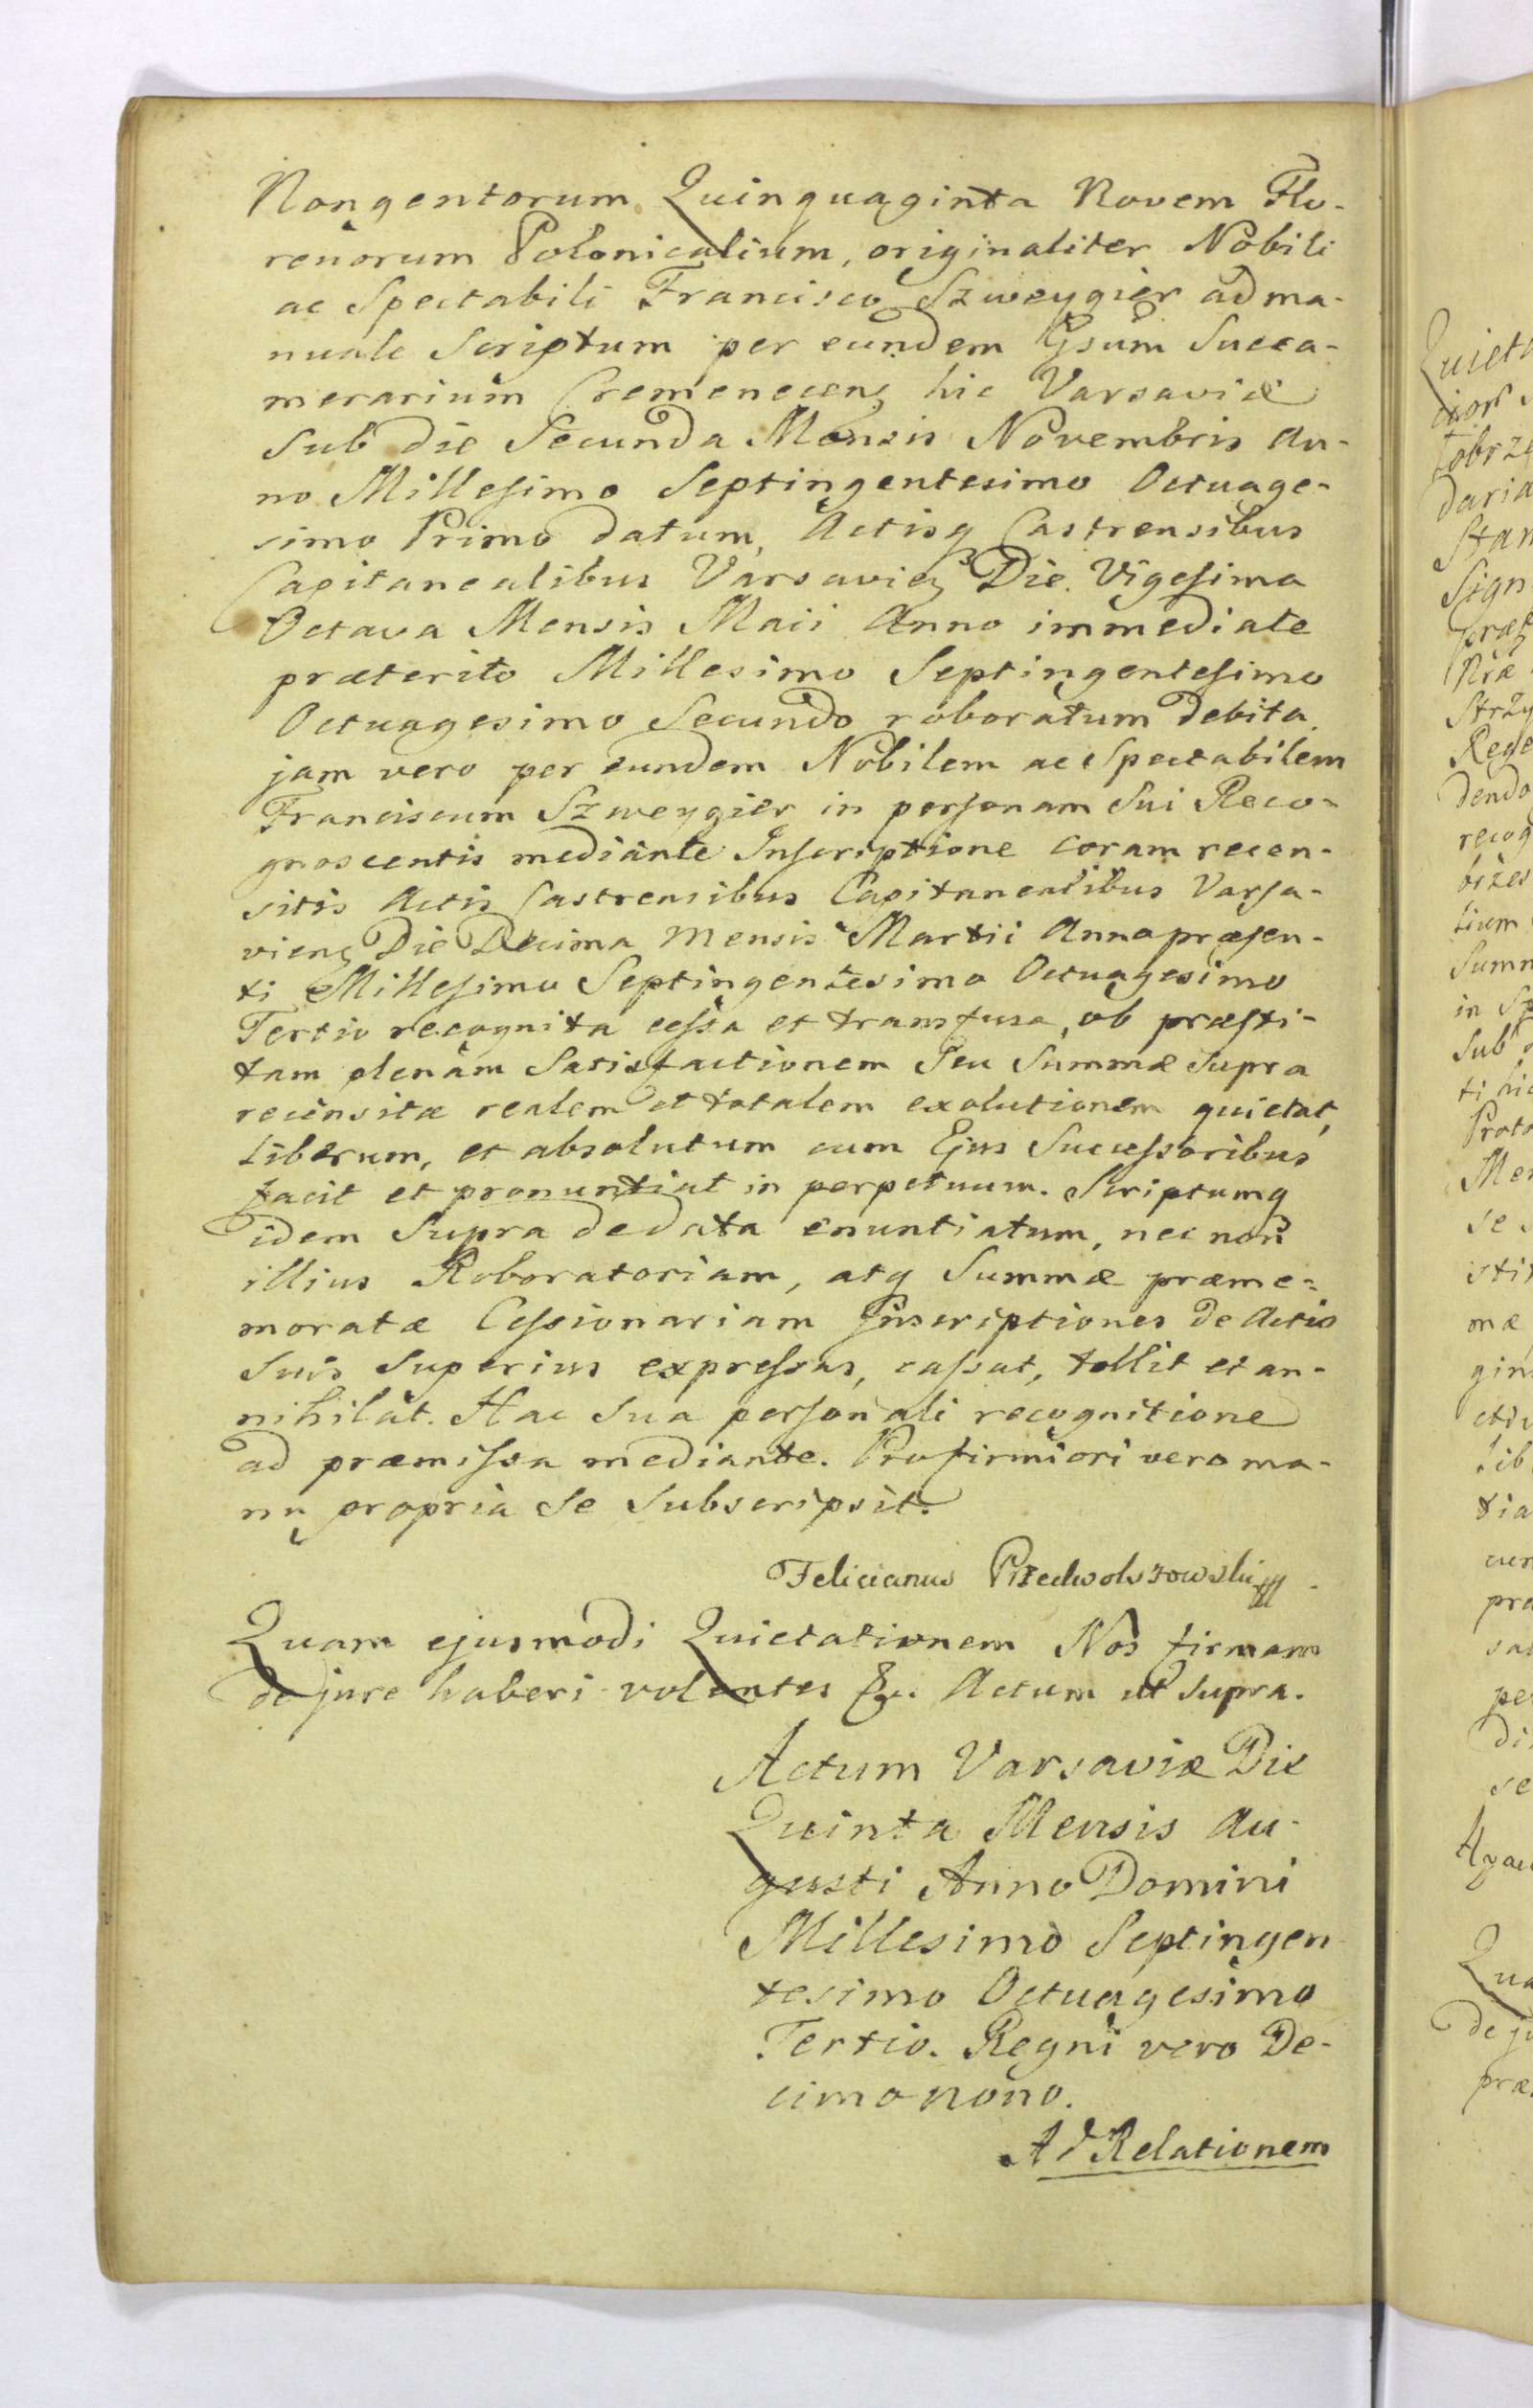 Nongentorum Quinquaginta Novem Flo-
renorum Polonicalium, originaliter Nobili
ac Spectabili Francisco Szweygier ad ma-
nuale Scriptum per eundem Gsum Succa-
merarium Cremenecens hic Varsaviæ
Sub die Secunda Mensis Novembris An-
no Millesimo Septingentesimo Octuage-
simo Primo datum, Actisq Castrensibus
Capitanealibus Varsavien Die Vigesima
Octava Mensis Maii Anno immediate
præterito Millesimo Septingentesimo
Octuagesimo Secundo roboratum debita
jam vero per eundem Nobilem ac Spectabilem
Franciscum Szweygier in personam Sui Reco-
gnoscentis mediante Inscriptione coram recen-
sitis Actis Castrensibus Capitanealibus Varsa-
viens Die Decima Mensis Martii Anno præsen-
ti Millesimo Septingentesimo Octuagesimo
Tertio recognita cessa et transfusa, ob præsti-
tam plenam Satisfactionem Seu Summæ Supra
recensitæ realem et totalem exolutionem quietat,
Liberum, et absolutum cum Ejus Successoribus
facit et pronuntiat in perpetuum. Scriptumq
idem Supra de data enuntiatum, nec non
illius Roboratoriam, atq Summæ præme-
moratæ Cessionariam Inscriptiones de Actis
Suis Superius expressas, cassat, tollit et an-
nihilat. Hac Sua personali recognitione
ad præmissa mediante. Pro firmiori vero ma-
nu propria Se Subscripsit.
Felicianus
Quam ejusmodi Quietationem Nos firmam
de jure haberi volentes &c. Actum ut Supra.
Actum Varsaviæ Die
Quinta Mensis Au-
gusti Anno Domini
Millesimo Septingen
tesimo Octuagesimo
Tertio. Regni vero De-
cimo nono.
Ad Relationem